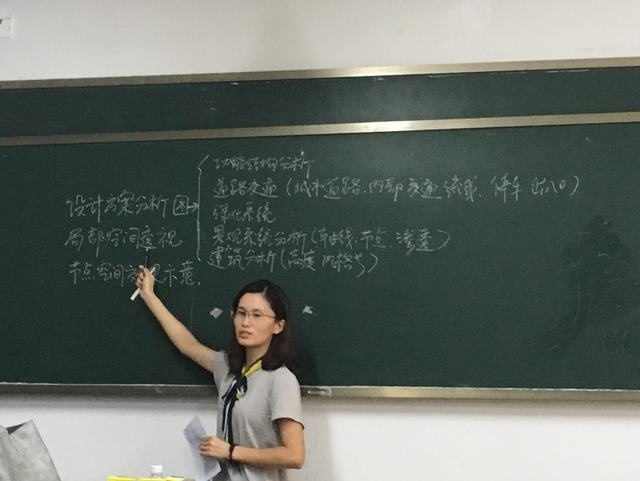 功能结构分析
道路交通(城市道路、内部交通流线、停车 出入口)
设计方案分析图→
绿化系统
局部空间透视
景观系统分析(轴线、节点、渗透)
建筑分析(高度 风格 )
节点空间 示意.